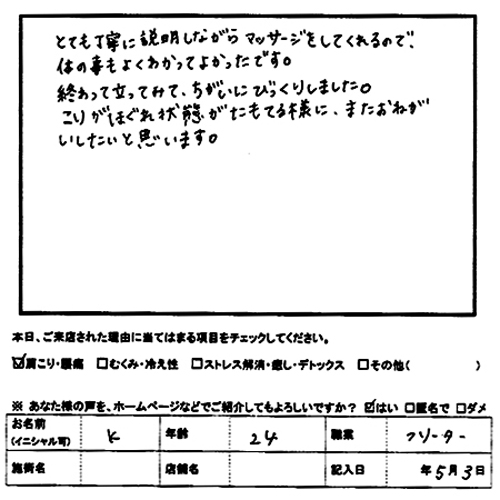 とても丁寧に説明しながらマッサージをしてくれるので、
体の事もよくわかってよかったです。
終わって立ってみて、ちがいにびっくりしました。
こりがほぐれ状態がたもてる様に、またおねが
いしたいと思います。
本日、ご来店された理由に当てはまる項目をチェックしてください。
☑肩こり・腰痛 □むくみ・冷え性 □ストレス解消・癒し・デトックス □その他( )
※ あなた様の声を、ホームページなどでご紹介してもよろしいですか？ ☑はい □匿名で □ダメ
お名前 (イニシャル可) K 年齢 24 職業 フリーター
施術名 店舗名 記入日 年5月3日